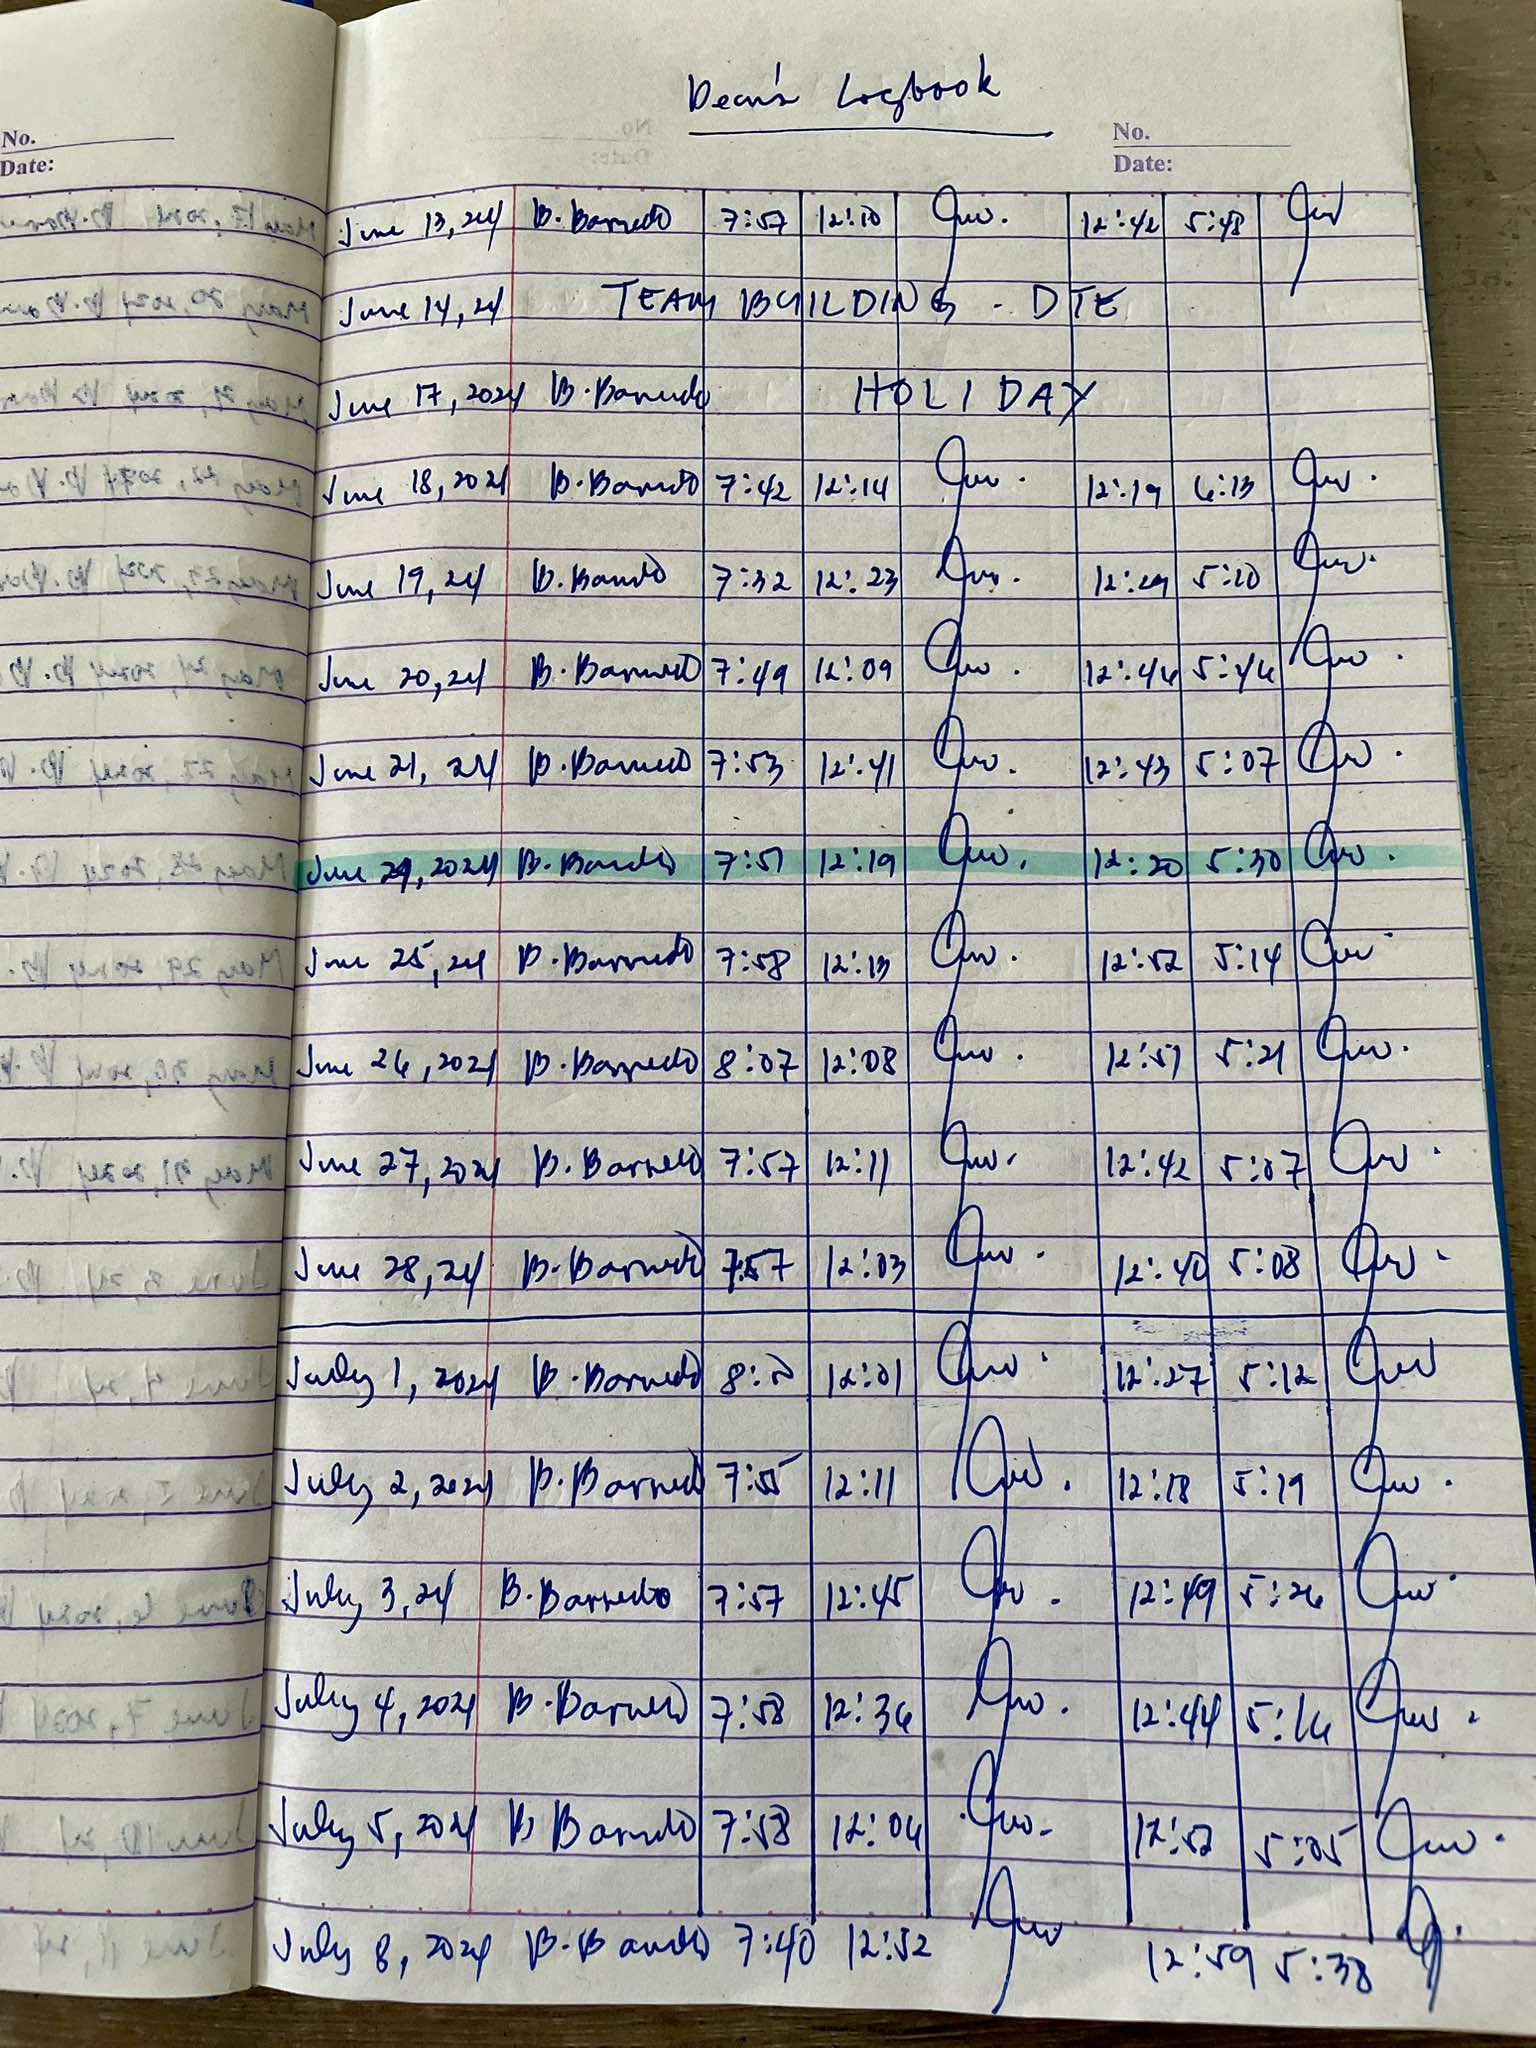 Dean's Logbook
No.
Date:
No.
Date:
June 13, 24 B. Barredo 7:57 12:10 12:42 5:48
June 14, 24 TEAM BUILDING - DTE
June 17, 2024 B. Barredo HOLIDAY
June 18, 2024 B. Barredo 7:42 12:14 12:19 6:13
June 19, 24 B. Barredo 7:32 12:23 12:29 5:10
June 20, 24 B. Barredo 7:49 12:09 12:46 5:46
June 21, 24 B. Barredo 7:53 12:41 12:43 5:07
June 24, 2024 B. Barredo 7:51 12:19 12:20 5:30
June 25, 24 B. Barredo 7:58 12:13 12:52 5:14
June 26, 2024 B. Barredo 8:07 12:08 12:51 5:21
June 27, 2024 B. Barredo 7:57 12:11 12:42 5:07
June 28, 24 B. Barredo 7:57 12:03 12:40 5:08
July 1, 2024 B. Barredo 12:01 12:27 5:12
July 2, 2024 B. Barredo 7:55 12:11 12:18 5:19
July 3, 24 B. Barredo 7:57 12:45 12:49 5:26
July 4, 2024 B. Barredo 7:58 12:36 12:44 5:16
July 5, 2024 B. Barredo 7:58 12:06 12:52 5:05
July 8, 2024 B. Barredo 7:40 12:52 12:59 5:38